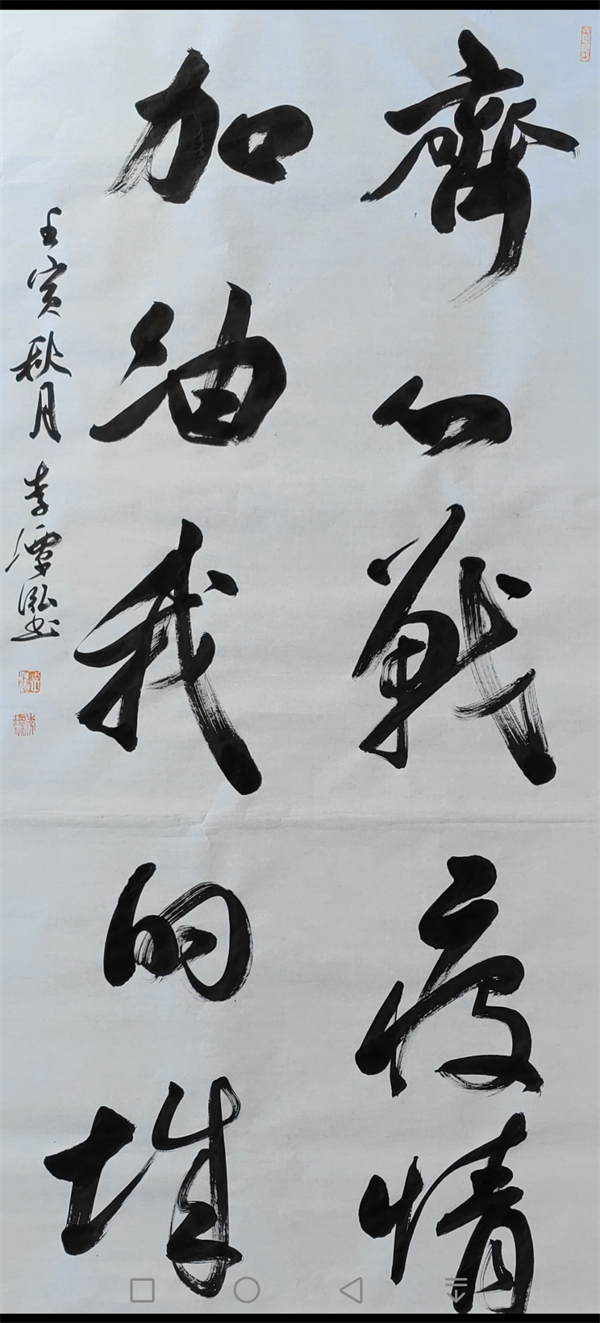 齊心戰疫情
加油我的城
壬寅秋月
李潭泓书